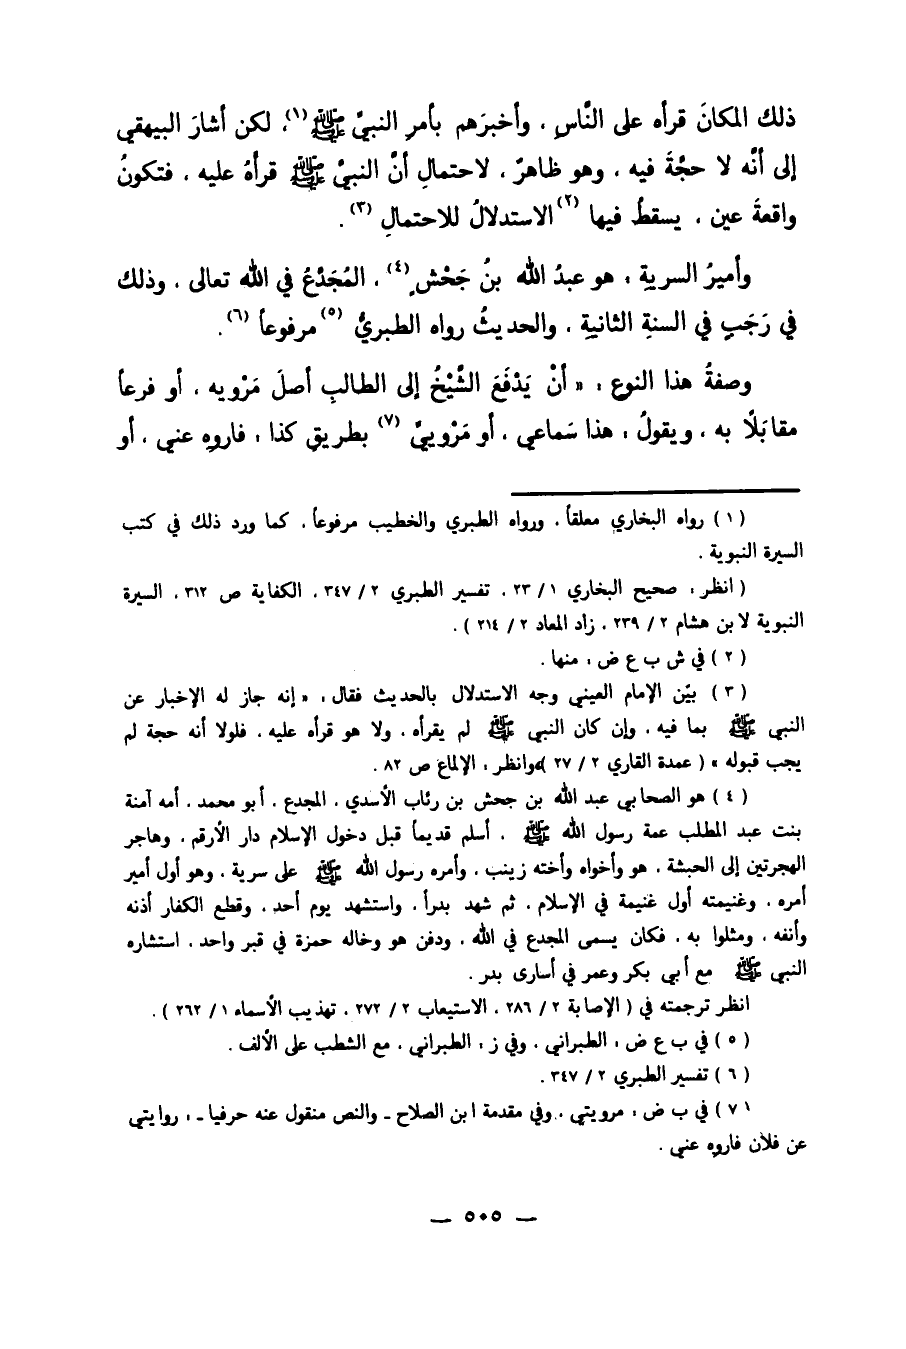 ذلك المكانَ قرأه على النَّاسِ ، وأخبرَهم بأمرِ النبيِّ ﷺ (١)، لكن أشارَ البيهقي
إلى أنَّه لا حجَّةَ فيه ، وهو ظاهرٌ ، لاحتمالِ أنَّ النبيَّ ﷺ قرأهُ عليه ، فتكونُ
واقعةَ عين ، يسقطُ فيها (٢) الاستدلالُ للاحتمالِ (٣) .
وأميرُ السريةِ ، هو عبدُ الله بنُ جَحْشٍ (٤) ، المُجَدَّعُ في الله تعالى ، وذلك
في رَجَبٍ في السنةِ الثانيةِ ، والحديثُ رواه الطبريُّ (٥) مرفوعاً (٦) .
وصفةُ هذا النوعِ : « أنْ يَدْفَعَ الشَّيْخُ إلى الطالبِ أصلَ مَرْويه ، أو فرعاً
مقابَلًا به ، ويقولُ : هذا سَماعي ، أو مَرْوييَّ (٧) بطريقِ كذا ، فاروِهِ عني ، أو
( ١ ) رواه البخاري معلقاً ، ورواه الطبري والخطيب مرفوعاً ، كما ورد ذلك في كتب
السيرة النبوية .
( انظر : صحيح البخاري ١ / ٢٣ ، تفسير الطبري ٢ / ٣٤٧ ، الكفاية ص ٣١٢ ، السيرة
النبوية لابن هشام ٢ / ٢٣٩ ، زاد المعاد ٢ / ٢١٤ ) .
( ٢ ) في ش ب ع ض : منها .
( ٣ ) بيّن الإمام العيني وجه الاستدلال بالحديث فقال : « إنه جاز له الإخبار عن
النبي ﷺ بما فيه ، وإن كان النبي ﷺ لم يقرأه ، ولا هو قرأه عليه ، فلولا أنه حجة لم
يجب قبوله » ( عمدة القاري ٢ / ٢٧ )، وانظر : الإلماع ص ٨٢ .
( ٤ ) هو الصحابي عبد الله بن جحش بن رئاب الأسدي ، المجدع ، أبو محمد ، أمه آمنة
بنت عبد المطلب عمة رسول الله ﷺ ، أسلم قديماً قبل دخول الإسلام دار الأرقم ، وهاجر
الهجرتين إلى الحبشة ، هو وأخواه وأخته زينب ، وأمره رسول الله ﷺ على سرية ، وهو أول أمير
أمره ، وغنيمته أول غنيمة في الإسلام ، ثم شهد بدراً ، واستشهد يوم أحد ، وقطع الكفار أذنه
وأنفه ، ومثلوا به ، فكان يسمى المجدع في الله ، ودفن هو وخاله حمزة في قبر واحد ، استشاره
النبي ﷺ مع أبي بكر وعمر في أسارى بدر .
انظر ترجمته في ( الإصابة ٢ / ٢٨٦ ، الاستيعاب ٢ / ٢٧٢ ، تهذيب الأسماء ١ / ٢٦٢ ) .
( ٥ ) في ب ع ض : الطبراني ، وفي ز : الطبراني ، مع الشطب على الألف .
( ٦ ) تفسير الطبري ٢ / ٣٤٧ .
٧١ ) في ب ض : مرويتي ، وفي مقدمة ابن الصلاح ـ والنص منقول عنه حرفيا ـ : روايتي
عن فلان فاروه عني .
ـ ٥٠٥ ـ